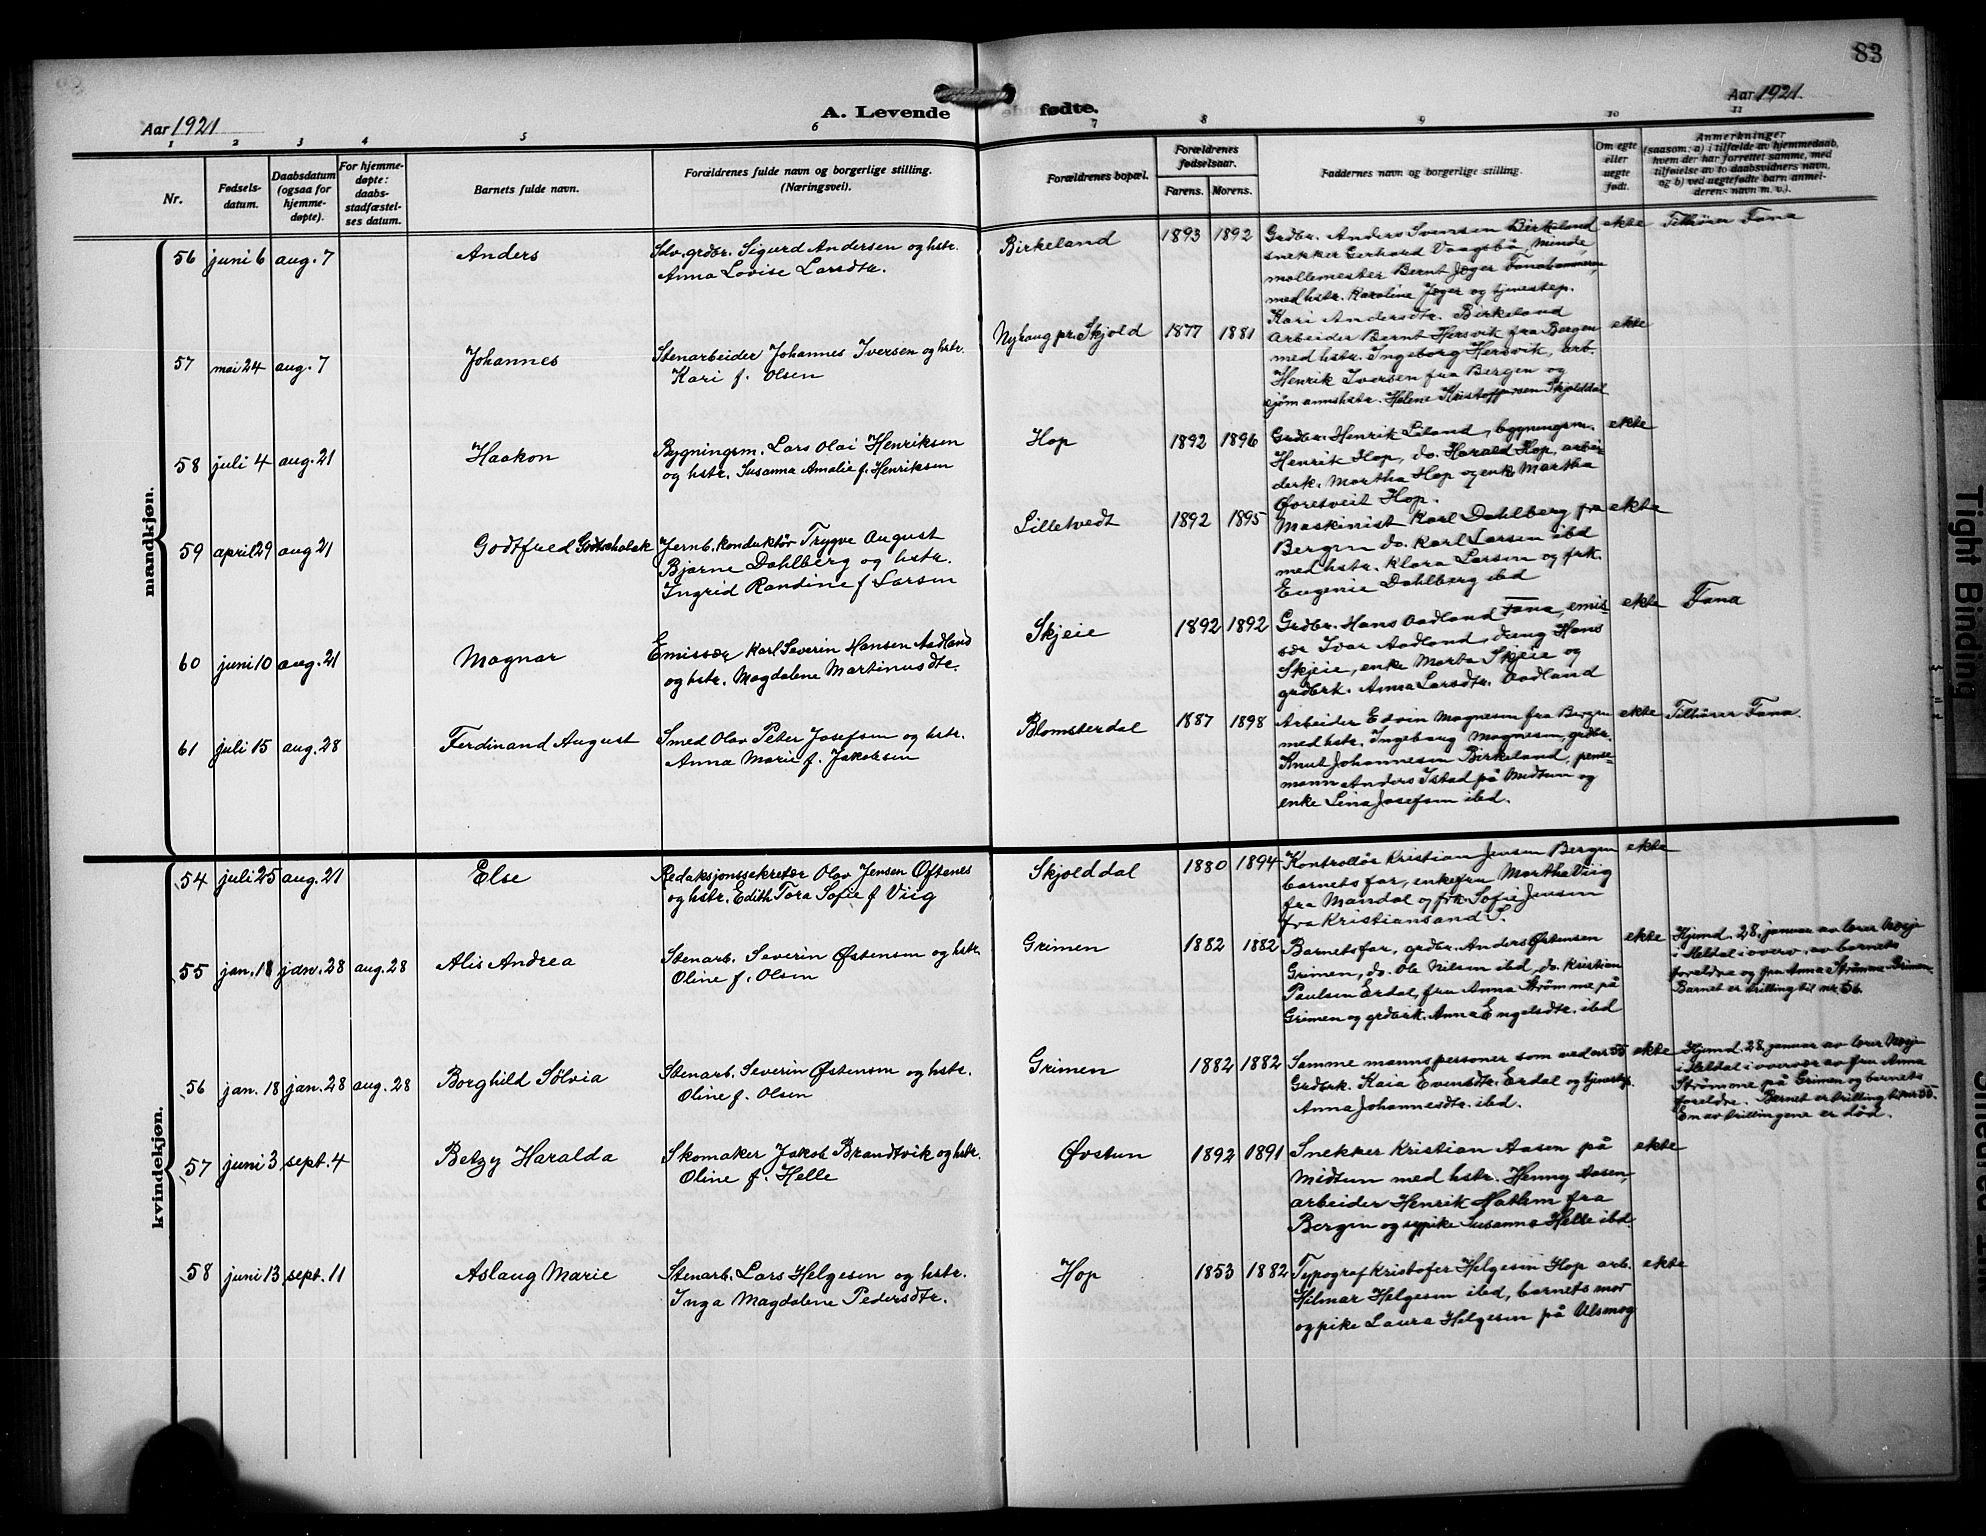 83
Aar 1921
A. Levende fødte.
Aar 1921
1 2 3 4 5 6 7 8 9 10 11
Nr.
Fødsels-
datum.
Daabsdatum
(ogsaa for
hjemme-
døpte).
For hjemme-
døpte:
daabs-
stadfæstel-
ses datum.
Barnets fulde navn.
Forældrenes fulde navn og borgerlige stilling.
(Næringsvei).
Forældrenes bopæl.
Forældrenes
fødselsaar.
Farens. Morens.
Faddernes navn og borgerlige stilling.
Om egte
eller
uegte
født.
Anmerkninger
(saasom: a) i tilfælde av hjemmedaab,
hvem der har forrettet samme, med
tilføielse av to daabsvidners navn,
og b) ved uegtefødte barn anmel-
derens navn m. v.).
mandkjøn.
56 juni 6 aug. 7 Anders
Selv.grdbr. Sigurd Andersen og hstr.
Anna Lovise Larsdtr.
Birkeland 1893 1892
Grdbr. Anders Svensen Birkeland
snekker Gerhard Vaagsbø, Minde,
møllemester Bernt Jæger Fanahammeren,
med hstr. Karoline Jæger og tjenestep.
Kari Andersdtr. Birkeland
ekte Tilhører Fana
57 mai 24 aug. 7 Johannes
Stenarbeider Johannes Iversen og hstr.
Kari f. Olsen
Nyhaug pr. Skjold 1877 1881
Arbeider Bernt Hersvik fra Bergen
med hstr. Ingeborg Hersvik, arb.
Henrik Iversen fra Bergen og
sjømannshstr. Helene Kristoffersen Skjolddal
ekte
58 juli 4 aug. 21 Haakon
Bygningsm. Lars Olai Henriksen
og hstr. Susanna Amalie f. Henriksen
Hop 1892 1896
Grdbr. Henrik Liland, bygningsm.
Henrik Hop, do. Harald Hop, arbei-
derk. Martha Hop og enk. Martha
Øvretveit Hop.
ekte
59 april 29 aug 21 Godtfred Godtschalak
Jernb. konduktør Trygve August
Bjarne Dahlberg og hstr.
Ingrid Randine f Larsen
Lilletvedt 1892 1895
Maskinist Karl Dahlberg fra
Bergen do. Karl Larsen ibd
med hstr. Klara Larsen og frk.
Eugenie Dahlberg ibd
ekte
60 juni 10 aug. 21 Magnar
Emissær Karl Severin Hansen Aadland
og hstr. Magdalene Martinusdtr.
Skjeie 1892 1892
Grdbr. Hans Aadland Fana, emis-
sær Ivar Aadland, dreng Hans
Skjeie, enke Marta Skjeie og
grdbrk. Anna Larsdtr. Aadland
ekte Fana
61 juli 15 aug. 28 Ferdinand August
Smed Olav Peter Josefsen og hstr.
Anna Marie f. Jakobsen
Blomsterdal 1887 1898
Arbeider Edvin Magnesen fra Bergen
med hstr. Ingeborg Magnesen, grdbr.
Knut Johannesen Birkeland, pens-
mann Anders Istad på Midtun og
enke Lina Josefsen ibd.
ekte Tilhører Fana.
kvindekjøn.
54 juli 25 aug. 21 Else
Redaksjonssekretær Olav Jensen Oftenes
og hstr. Edith Tora Sofie f Viig
Skjolddal 1880 1894
Kontrollør Kristian Jensen Bergen
barnets far, enkefru Martha Viig
fra Mandal og frk. Sofie Jensen
fra Kristiansand S.
ekte
55 jan. 18 jan. 28 aug. 28 Alis Andrea
Stenarb. Severin Østensen og hstr
Oline f. Olsen
Grimen 1882 1882
Barnets far, grdbr. Anders Østensen
Grimen, do. Ole Nilsen ibd, do. Kristian
Paulsen Erdal, fru Anna Strømme på
Grimen og grdbrk. Anna Engelsdtr. ibd
ekte
Hjemd. 28. januar av lærer
i Heldal i overv. av barnets
foreldre og fru Anna Strømme Grimen.
Barnet er trilling til nr. 56.
56 jan. 18 jan. 28 aug. 28 Borghild Sølvia
Stenarb. Severin Østensen og hstr.
Oline f. Olsen
Grimen 1882 1882
Samme mannspersoner som ved nr 55
Grdbrk. Kaia Evensdtr. Erdal og tjenestep.
Anna Johannesdtr. ibd.
ekte
Hjemd. 28. januar av lærer
i Heldal i overvær av fru Anna
Strømme på Grimen og barnets
foreldre. Barnet er trilling til nr 55.
En av trillingene er død.
57 juni 3 sept. 4 Betzy Haralda
Skomaker Jakob Brandtvik og hstr.
Oline f. Helle
Øvstun 1892 1891
Snekker Kristian Aasen på
Midtun med hstr. Henny Aasen,
arbeider Henrik Hatlem fra
Bergen og sypike Susanna Helle ibd.
ekte
58 juni 13 sept. 11 Aslaug Marie
Stenarb. Lars Helgesen og hstr.
Inga Magdalene Pedersdtr.
Hop 1853 1882
Typograf Kristofer Helgesen Hop arb.
Hilmar Helgesen ibd, barnets mor
og pike Laura Helgesen på Ulsmog
ekte
Tight Binding